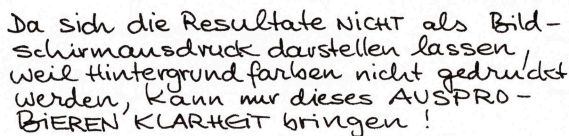 Da sich die Resultate NICHT als Bild-
schirmausdruck darstellen lassen,
weil Hintergrundfarben nicht gedruckt
werden, kann nur dieses AUSPRO-
BIEREN KLARHEIT bringen!